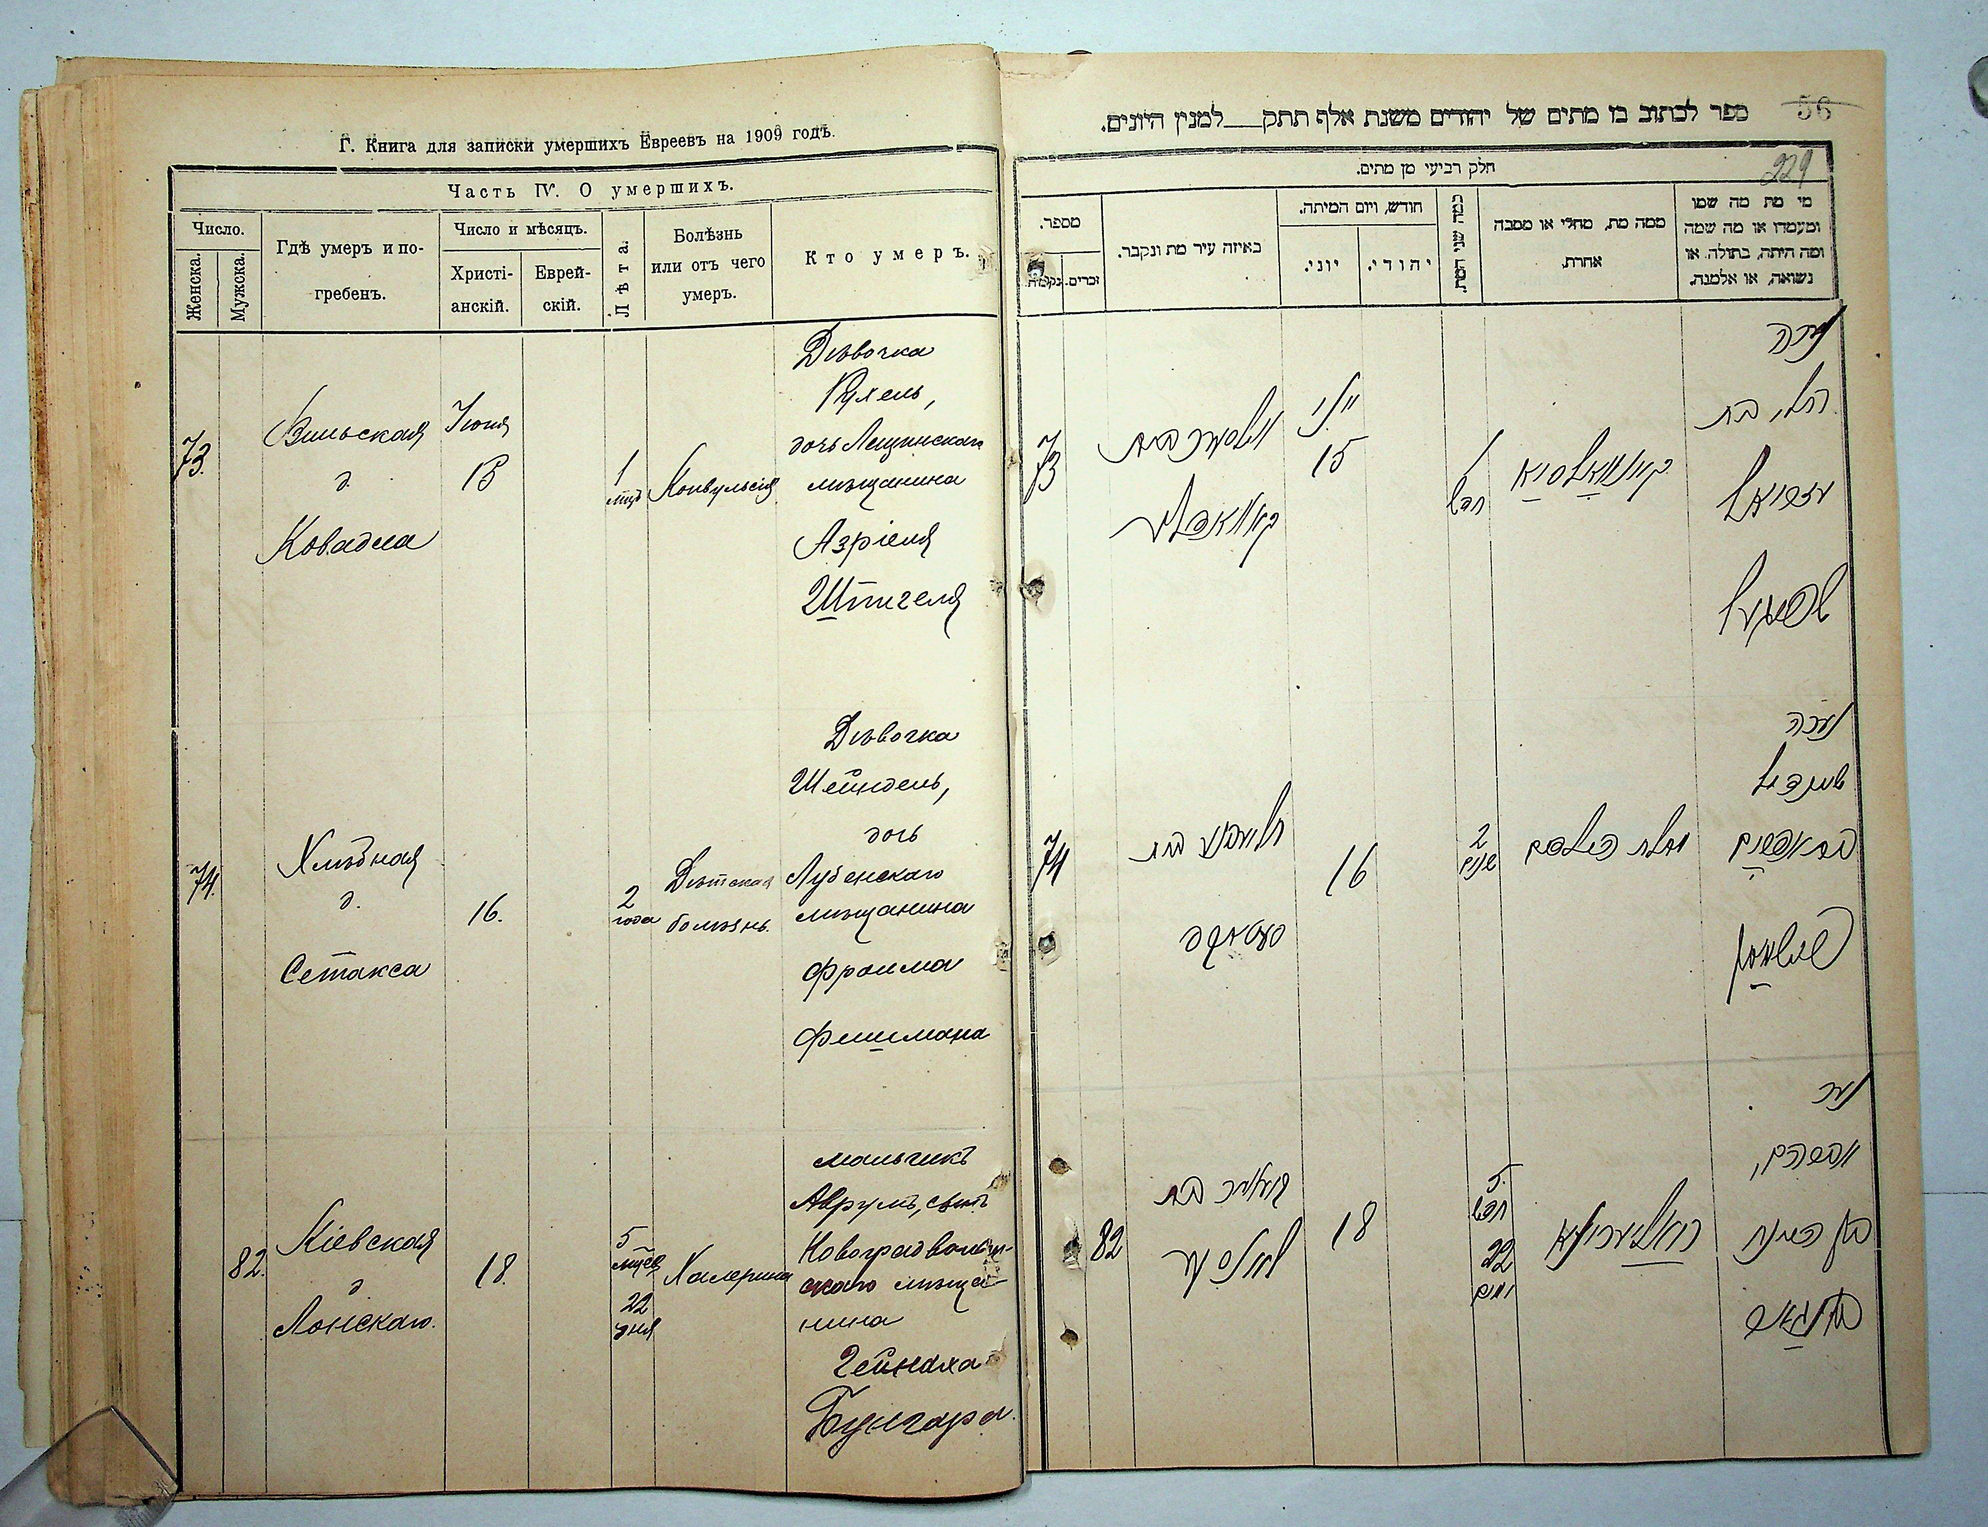 Г. Книга для записки умершихъ Евреевъ на 1909 годъ.
Часть IV. О умершихъ.
Число.
Женска.
Мужска.
Гдѣ умеръ и по-
гребенъ.
Число и мѣсяцъ.
Христі-
анскій.
Еврей-
скій.
Лѣта.
Болѣзнь
или отъ чего
умеръ.
Кто умеръ.
73.
Вильская
д.
Ковадла
Іюня
15
1
мцъ
Конвульсія
Дѣвочка
Рухель,
дочь Лещинскаго
мѣщанина
Азріеля
Шпигеля
74.
Хлѣбная
д.
Сетакса
16.
2
года
Дѣтская
болѣзнь.
Дѣвочка
Шейндель,
дочь
Лубенскаго
мѣщанина
Фроима
Фишмана
82.
Кіевская
д.
Лонскаго.
18
5
мцев
22
дня
Холерина
Мальчикъ
Аврумъ, сынъ
Новоградволын-
скаго мѣща-
нина
Гейнаха
Бунгара.
56
ספר לכתוב בו מתים של יהודים משנת אלף תתק למנין היונים.
229
חלק רביעי מן מתים.
מספר.
נקבות.
זכרים.
באיזה עיר מת ונקבר.
חודש, ויום המיתה.
יוני.
יהודי.
כמה שני המת.
ממה מת, מחלי או מסבה
אחרת.
מי מת מה שמו
ומעמדו או מה שמה
ומה היתה, בתולה או
נשואה, או אלמנה.
73
יוני
15
1
חדש
נערה
רחל, בת
עזריאל
שפיגעל
74
16
2
שנים
נערה
שיינדיל
פישמאן
82
18
5
חדש
22
ימים
נער
אברהם,